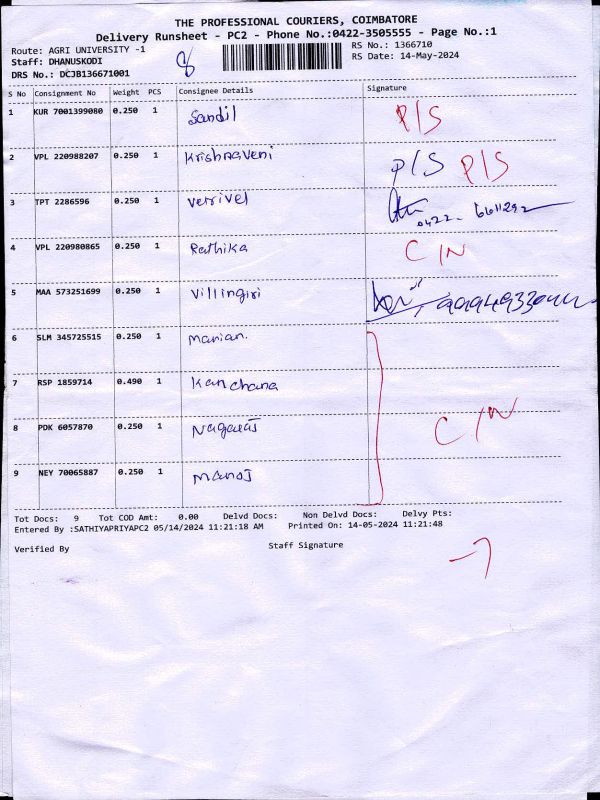 THE PROFESSIONAL COURIERS, COIMBATORE
Delivery Runsheet - PC2 - Phone No.:0422-3505555 - Page No.:1
Route: AGRI UNIVERSITY -1
RS No.: 1366710
Staff: DHANUSKODI
RS Date: 14-May-2024
DRS No.: DCJB136671001
8
S No Consignment No Weight PCS Consignee Details Signature
1 KUR 7001399080 0.250 1 Sandil P/S
2 VPL 220988207 0.250 1 Krishnaveni P/S P/S
3 TPT 2286596 0.250 1 Vetrivel 0422- 6611292
4 VPL 220980865 0.250 1 Rathika C/N
5 MAA 573251699 0.250 1 Villingiri
6 SLM 345725515 0.250 1 Manian.
7 RSP 1859714 0.490 1 Kanchana
8 PDK 6057870 0.250 1 Nagaraj C/N
9 NEY 70065887 0.250 1 Manoj
Tot Docs: 9 Tot COD Amt: 0.00 Delvd Docs: Non Delvd Docs: Delvy Pts:
Entered By :SATHIYAPRIYAPC2 05/14/2024 11:21:18 AM Printed On: 14-05-2024 11:21:48
Verified By Staff Signature